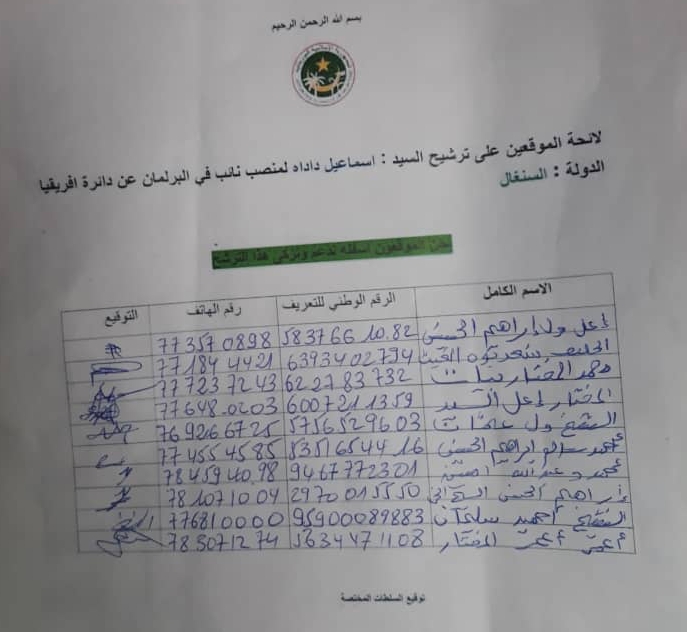 بسم الله الرحمن الرحيم
لائحة الموقعين على ترشيح السيد : اسماعيل داداه لمنصب نائب في البرلمان عن دائرة افريقيا
الدولة : السنغال
نحن الموقعون اسفله ندعم ونزكي هذا الترشح
الاسم الكامل الرقم الوطني للتعريف رقم الهاتف التوقيع
إعل ولد إبراهيم الحسن 5837661082 773570898
6393402794 771844421
محمد المختار 622783732 777237243
المختار إعل السيد 6007211359 776480203
الشيخ ولد 5756529603 769266725
محمد سالم إبراهيم الحسن 5351654416 774554585
محمد عبد الله 9467772301 784594098
إبراهيم الحسن 2970015550 781071004
الشيخ أحميد سليمان 95900089883 776810000
أعمر أعمر المختار 5634471108 785071274
توقيع السلطات المختصة